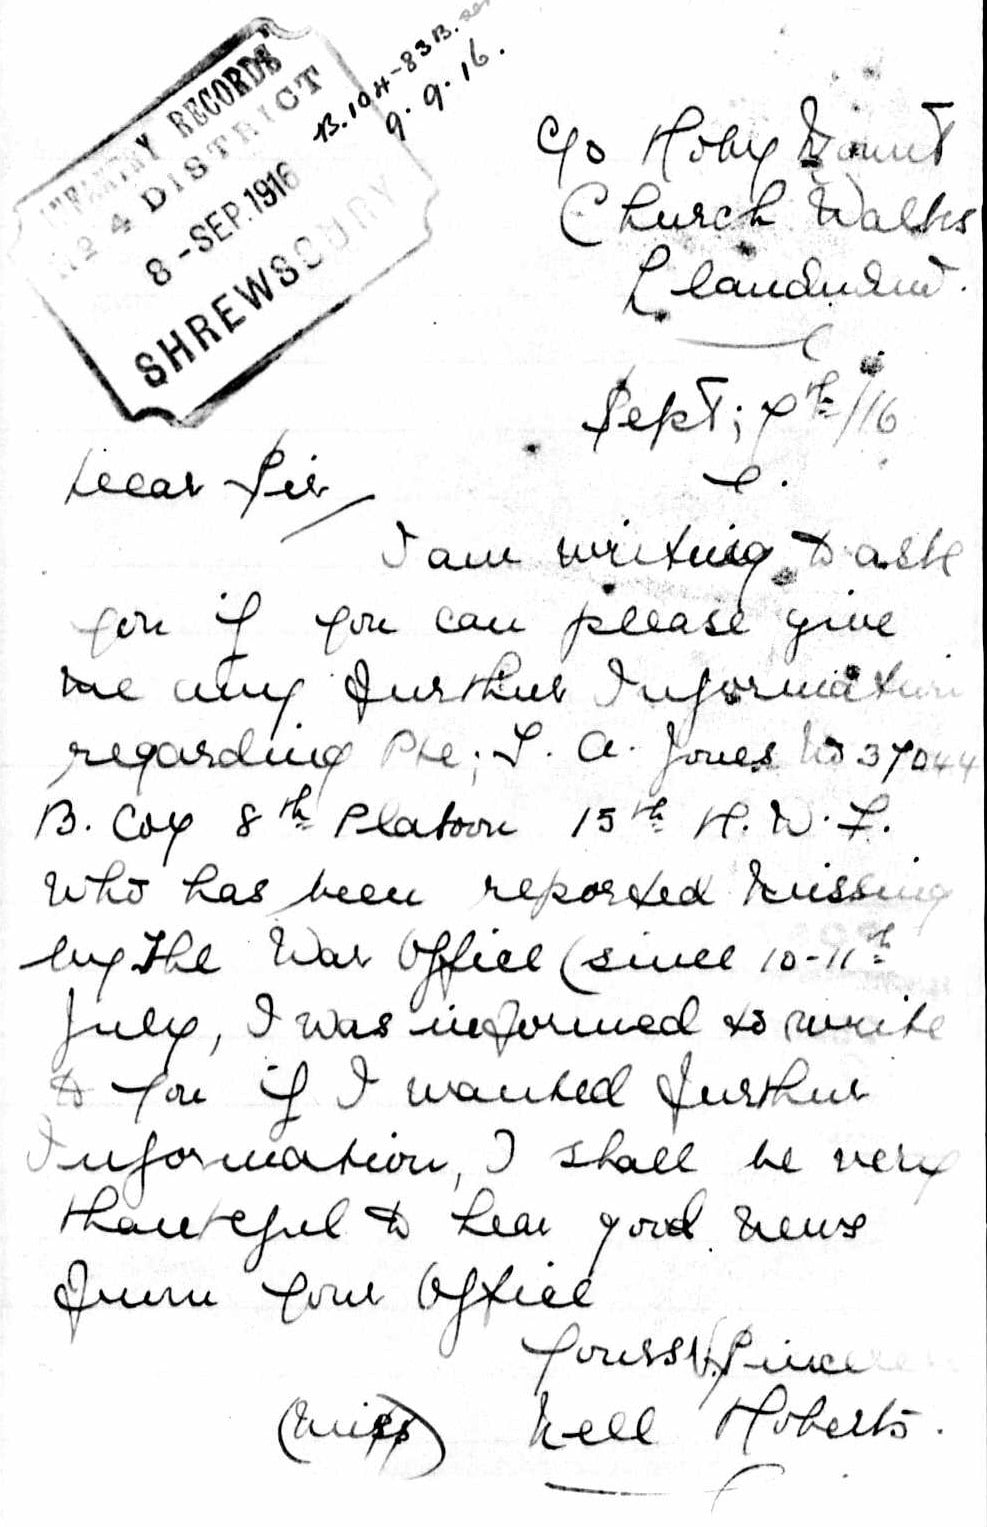 INFANTRY RECORDS
No 4 DISTRICT
8 - SEP. 1916
SHREWSBURY
9.9.16.
c/o Roby Mount
Church Walks
Llandudno.
Sept; 7th/16
Dear Sir
I am writing to ask
you if you can please give
me any further Information
regarding Pte; L. A. Jones No 37044
B. Coy 8th Platoon 15th R. W. F.
who has been reported Missing
by the War Office (since 10-11th
July, I was informed to write
to you if I wanted further
Information, I shall be very
thankful to hear good news
from your Office
Yours V. Sincerely
(Miss) Nell Roberts.